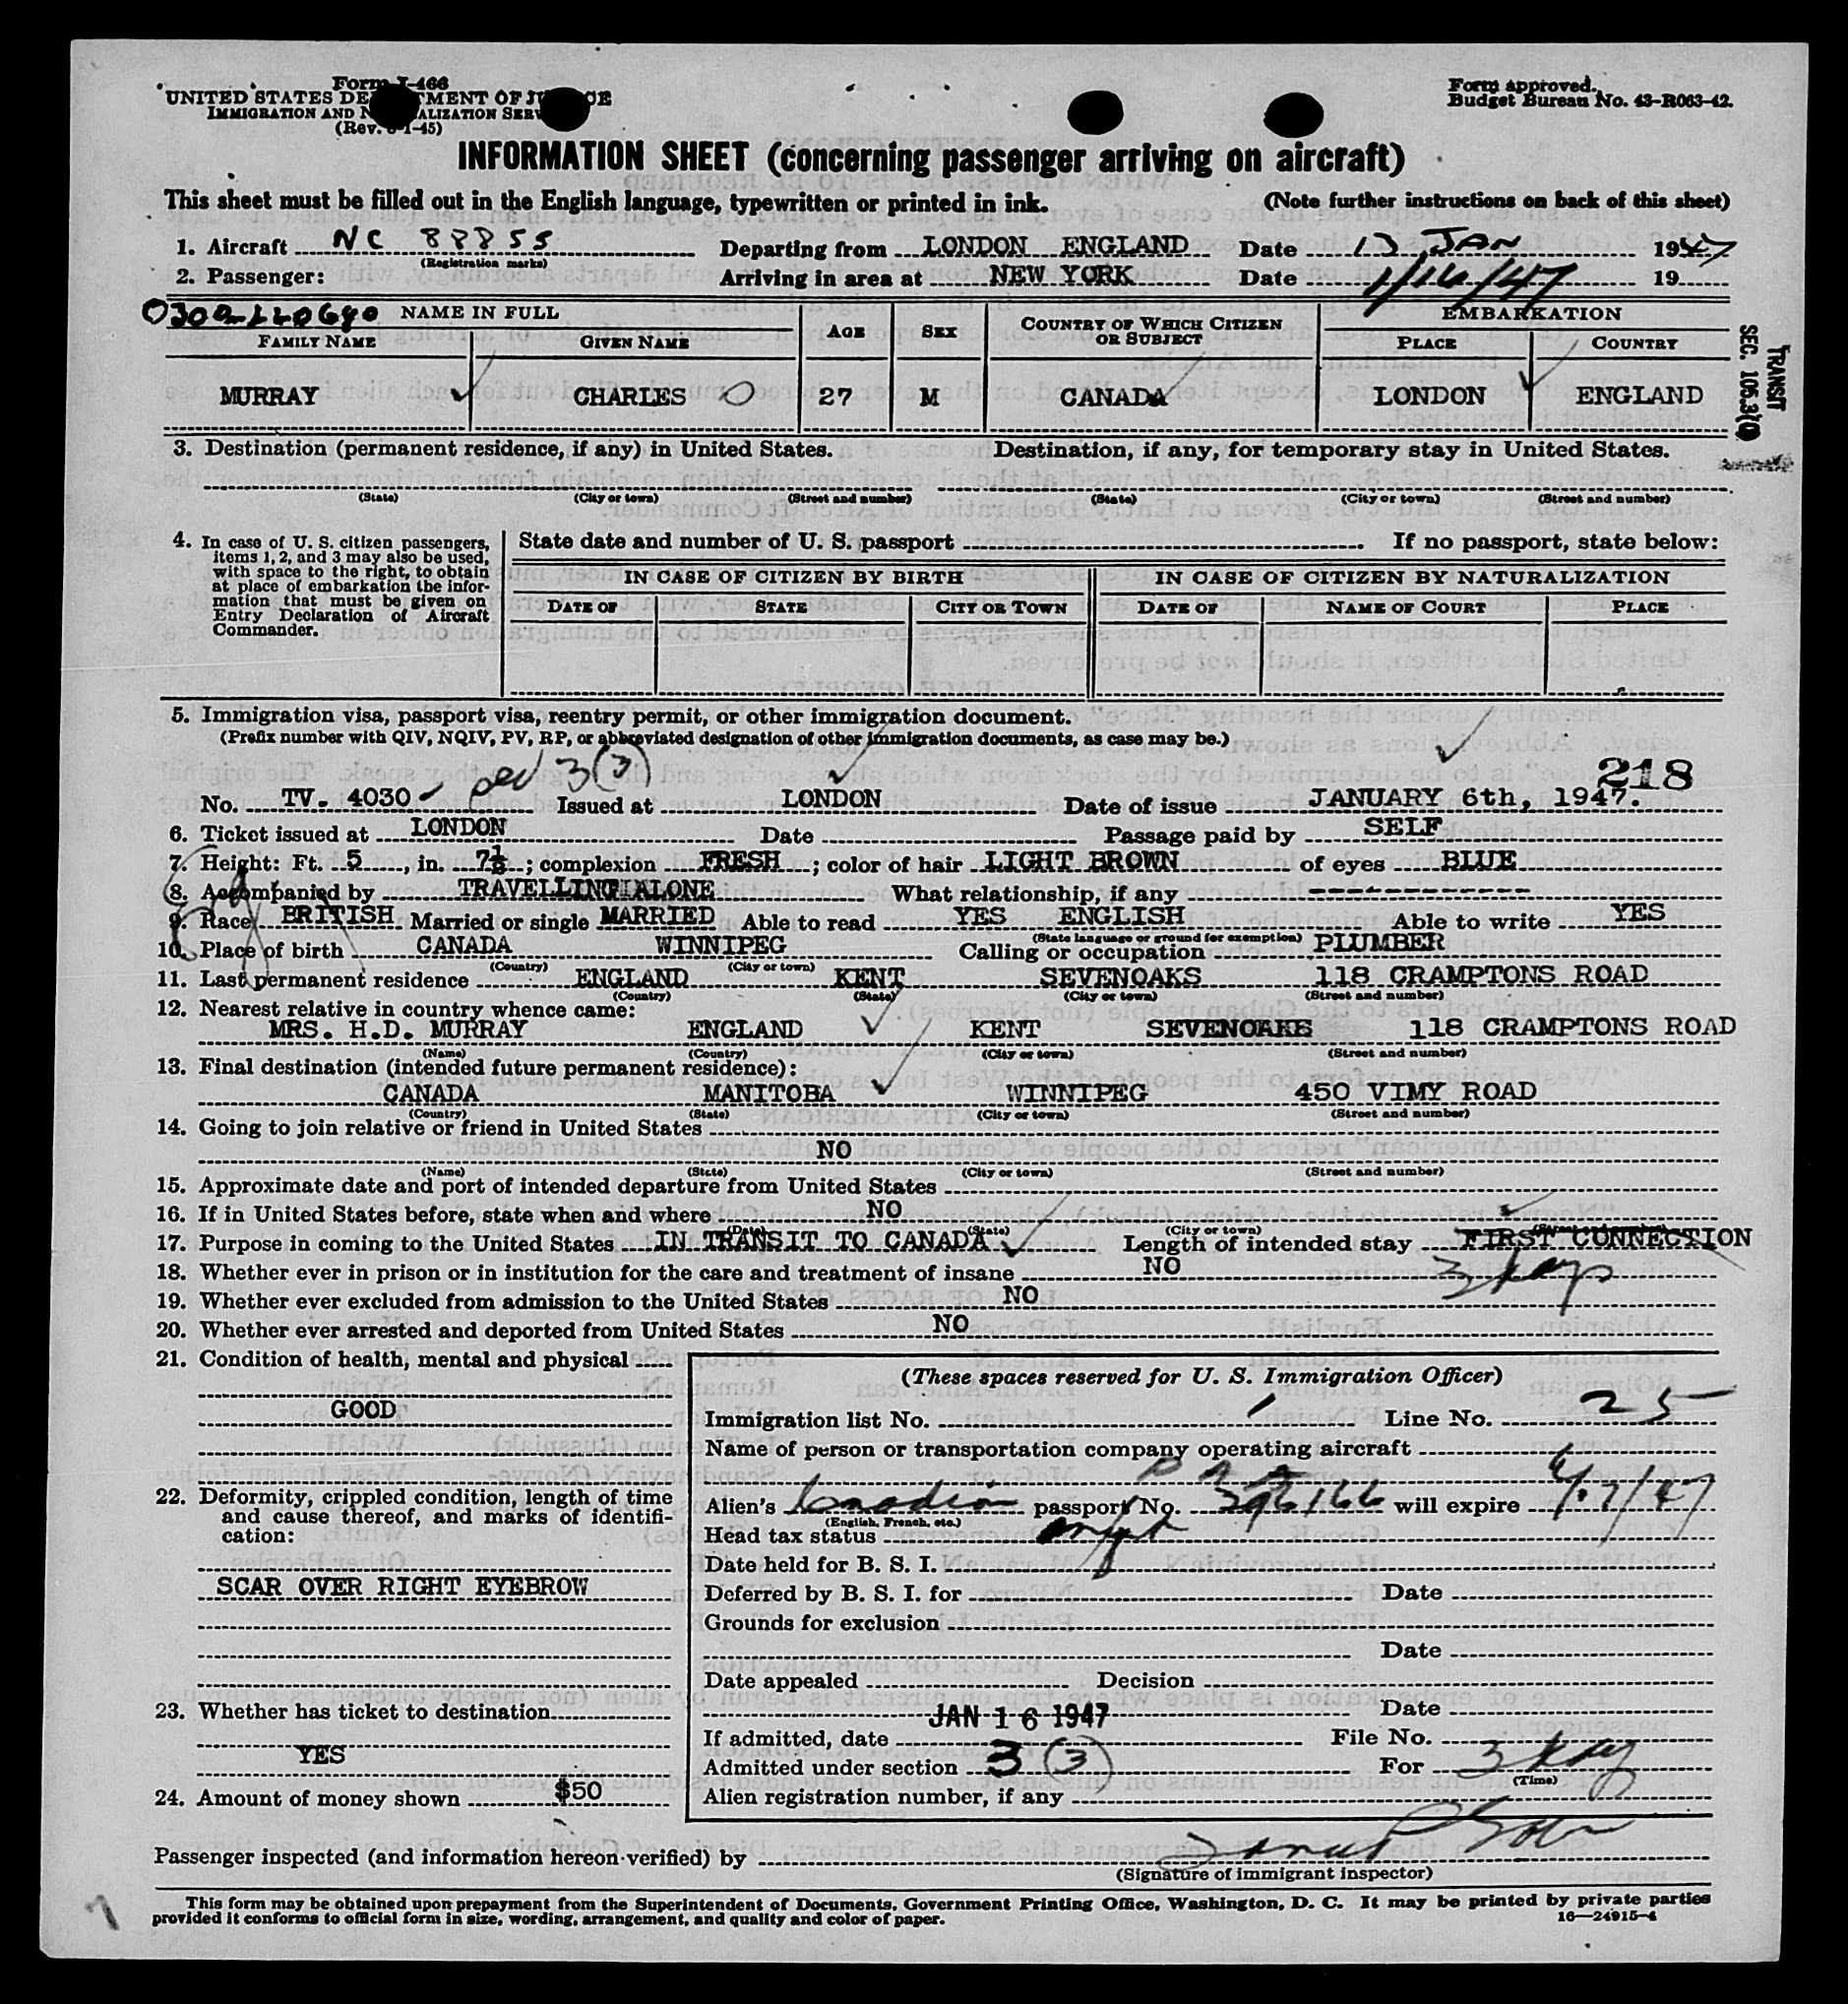 Form I-466
UNITED STATES DEPARTMENT OF JUSTICE
IMMIGRATION AND NATURALIZATION SERVICE
(Rev. 6-1-45)
Form approved.
Budget Bureau No. 43-R063-42.
INFORMATION SHEET (concerning passenger arriving on aircraft)
This sheet must be filled out in the English language, typewritten or printed in ink. (Note further instructions on back of this sheet)
1. Aircraft NC 88855 Departing from LONDON ENGLAND Date 13 JAN 1947
(Registration marks)
2. Passenger: Arriving in area at NEW YORK Date 1/16/47 19
NAME IN FULL AGE SEX COUNTRY OF WHICH CITIZEN OR SUBJECT EMBARKATION
FAMILY NAME GIVEN NAME PLACE COUNTRY
MURRAY CHARLES 27 M CANADA LONDON ENGLAND
TRANSIT
SEC. 105.3(
3. Destination (permanent residence, if any) in United States. Destination, if any, for temporary stay in United States.
(State) (City or town) (Street and number) (State) (City or town) (Street and number)
4. In case of U. S. citizen passengers,
items 1, 2, and 3 may also be used,
with space to the right, to obtain
at place of embarkation the infor-
mation that must be given on
Entry Declaration of Aircraft
Commander.
State date and number of U. S. passport If no passport, state below:
IN CASE OF CITIZEN BY BIRTH IN CASE OF CITIZEN BY NATURALIZATION
DATE OF STATE CITY OR TOWN DATE OF NAME OF COURT PLACE
5. Immigration visa, passport visa, reentry permit, or other immigration document.
(Prefix number with QIV, NQIV, PV, RP, or abbreviated designation of other immigration documents, as case may be.)
218
No. TV. 4030 3(3) Issued at LONDON Date of issue JANUARY 6th, 1947.
6. Ticket issued at LONDON Date Passage paid by SELF
7. Height: Ft. 5, in. 7½; complexion FRESH; color of hair LIGHT BROWN of eyes BLUE
8. Accompanied by TRAVELLING ALONE What relationship, if any
9. Race BRITISH Married or single MARRIED Able to read YES ENGLISH Able to write YES
(State language or ground for exemption)
10. Place of birth CANADA WINNIPEG Calling or occupation PLUMBER
(Country) (City or town)
11. Last permanent residence ENGLAND KENT SEVENOAKS 118 CRAMPTONS ROAD
(Country) (State) (City or town) (Street and number)
12. Nearest relative in country whence came:
MRS. H.D. MURRAY ENGLAND KENT SEVENOAKS 118 CRAMPTONS ROAD
(Name) (Country) (City or town) (Street and number)
13. Final destination (intended future permanent residence):
CANADA MANITOBA WINNIPEG 450 VIMY ROAD
(Country) (State) (City or town) (Street and number)
14. Going to join relative or friend in United States
NO
(Name) (State) (City or town) (Street and number)
15. Approximate date and port of intended departure from United States
16. If in United States before, state when and where NO
(Date) (State) (City or town) (Street and number)
17. Purpose in coming to the United States IN TRANSIT TO CANADA Length of intended stay FIRST CONNECTION
18. Whether ever in prison or in institution for the care and treatment of insane NO 3 days
19. Whether ever excluded from admission to the United States NO
20. Whether ever arrested and deported from United States NO
21. Condition of health, mental and physical
GOOD
22. Deformity, crippled condition, length of time
and cause thereof, and marks of identifi-
cation:
SCAR OVER RIGHT EYEBROW
23. Whether has ticket to destination
YES
24. Amount of money shown $50
(These spaces reserved for U. S. Immigration Officer)
Immigration list No. 1 Line No. 25
Name of person or transportation company operating aircraft
P A A
Alien's Canadian passport No. will expire
(English, French, etc.)
Head tax status
Date held for B. S. I.
Deferred by B. S. I. for Date
Grounds for exclusion
Date
Date appealed Decision
Date
If admitted, date JAN 16 1947 File No.
Admitted under section 3 (3) For 3 days
(Time)
Alien registration number, if any
Passenger inspected (and information hereon verified) by
(Signature of immigrant inspector)
This form may be obtained upon prepayment from the Superintendent of Documents, Government Printing Office, Washington, D. C. It may be printed by private parties
provided it conforms to official form in size, wording, arrangement, and quality and color of paper. 16—24915-4